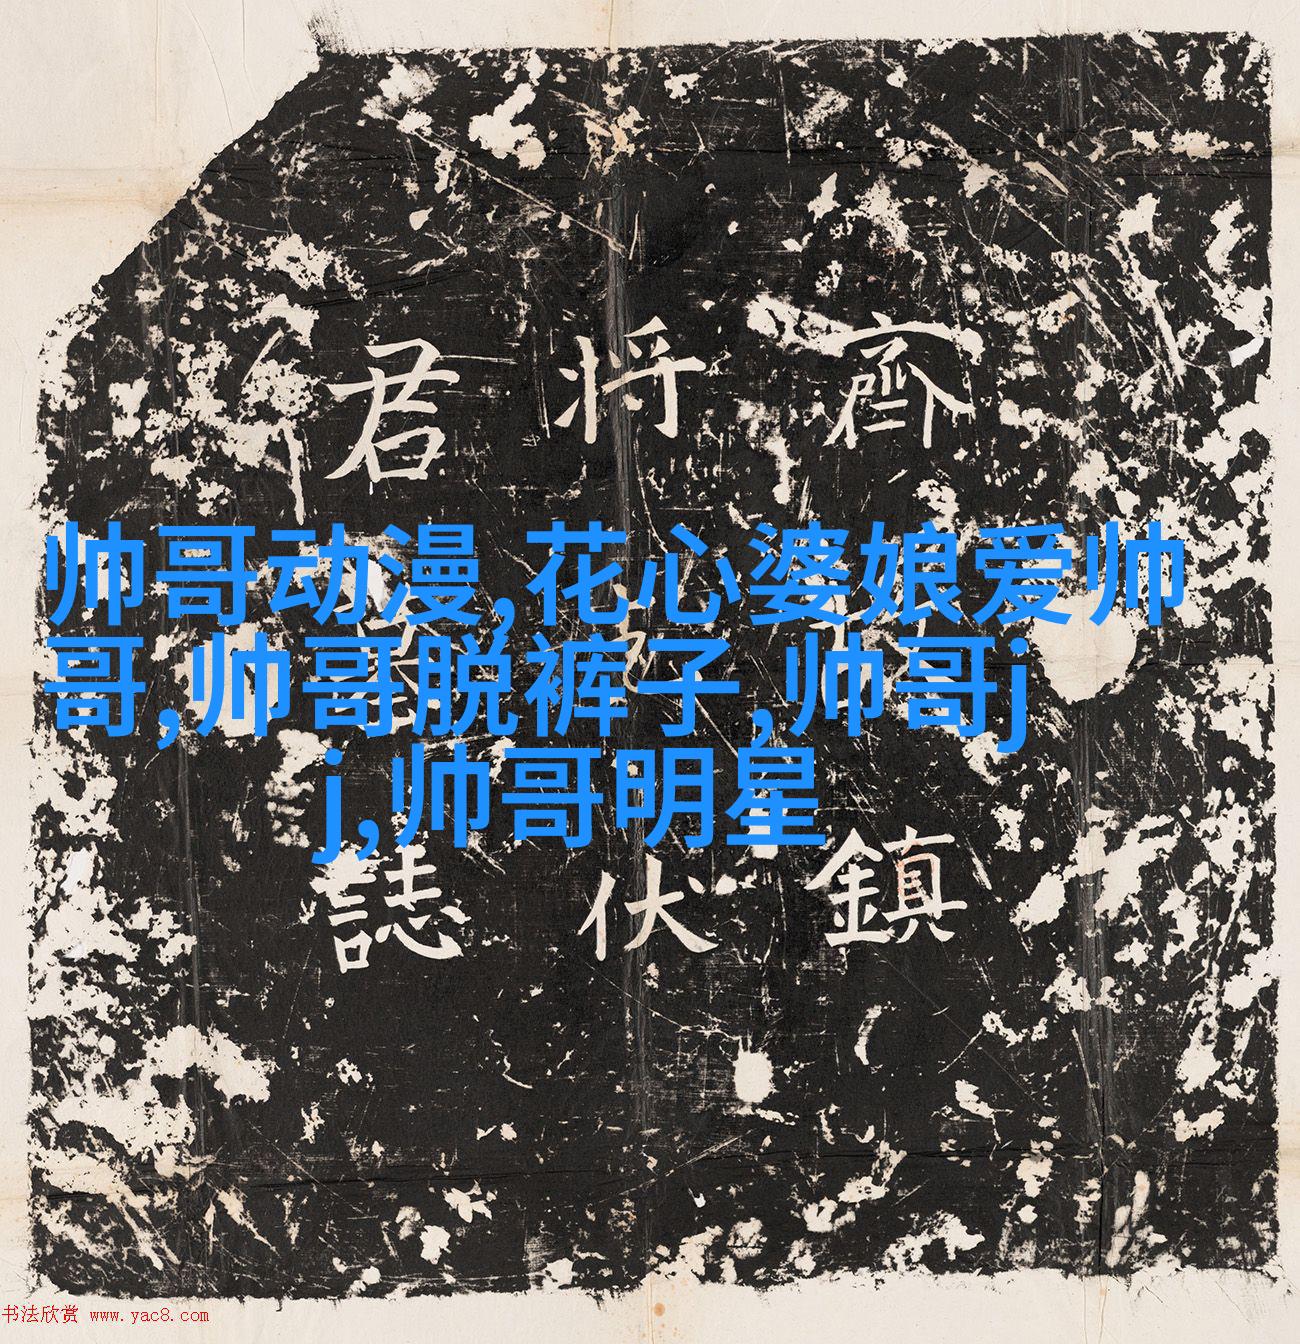 齊 鎮
将 伏
君 誌
帅哥动漫,花心婆娘爱帅
哥,帅哥脱裤子,帅哥j
j,帅哥明星
书法欣赏 www.yac8.com